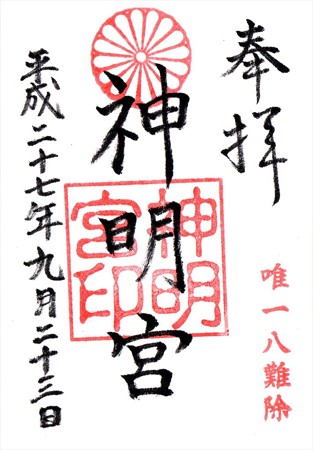 奉拝
唯一八難除
神明宮
神明
宮印
平成二十七年九月二十三日